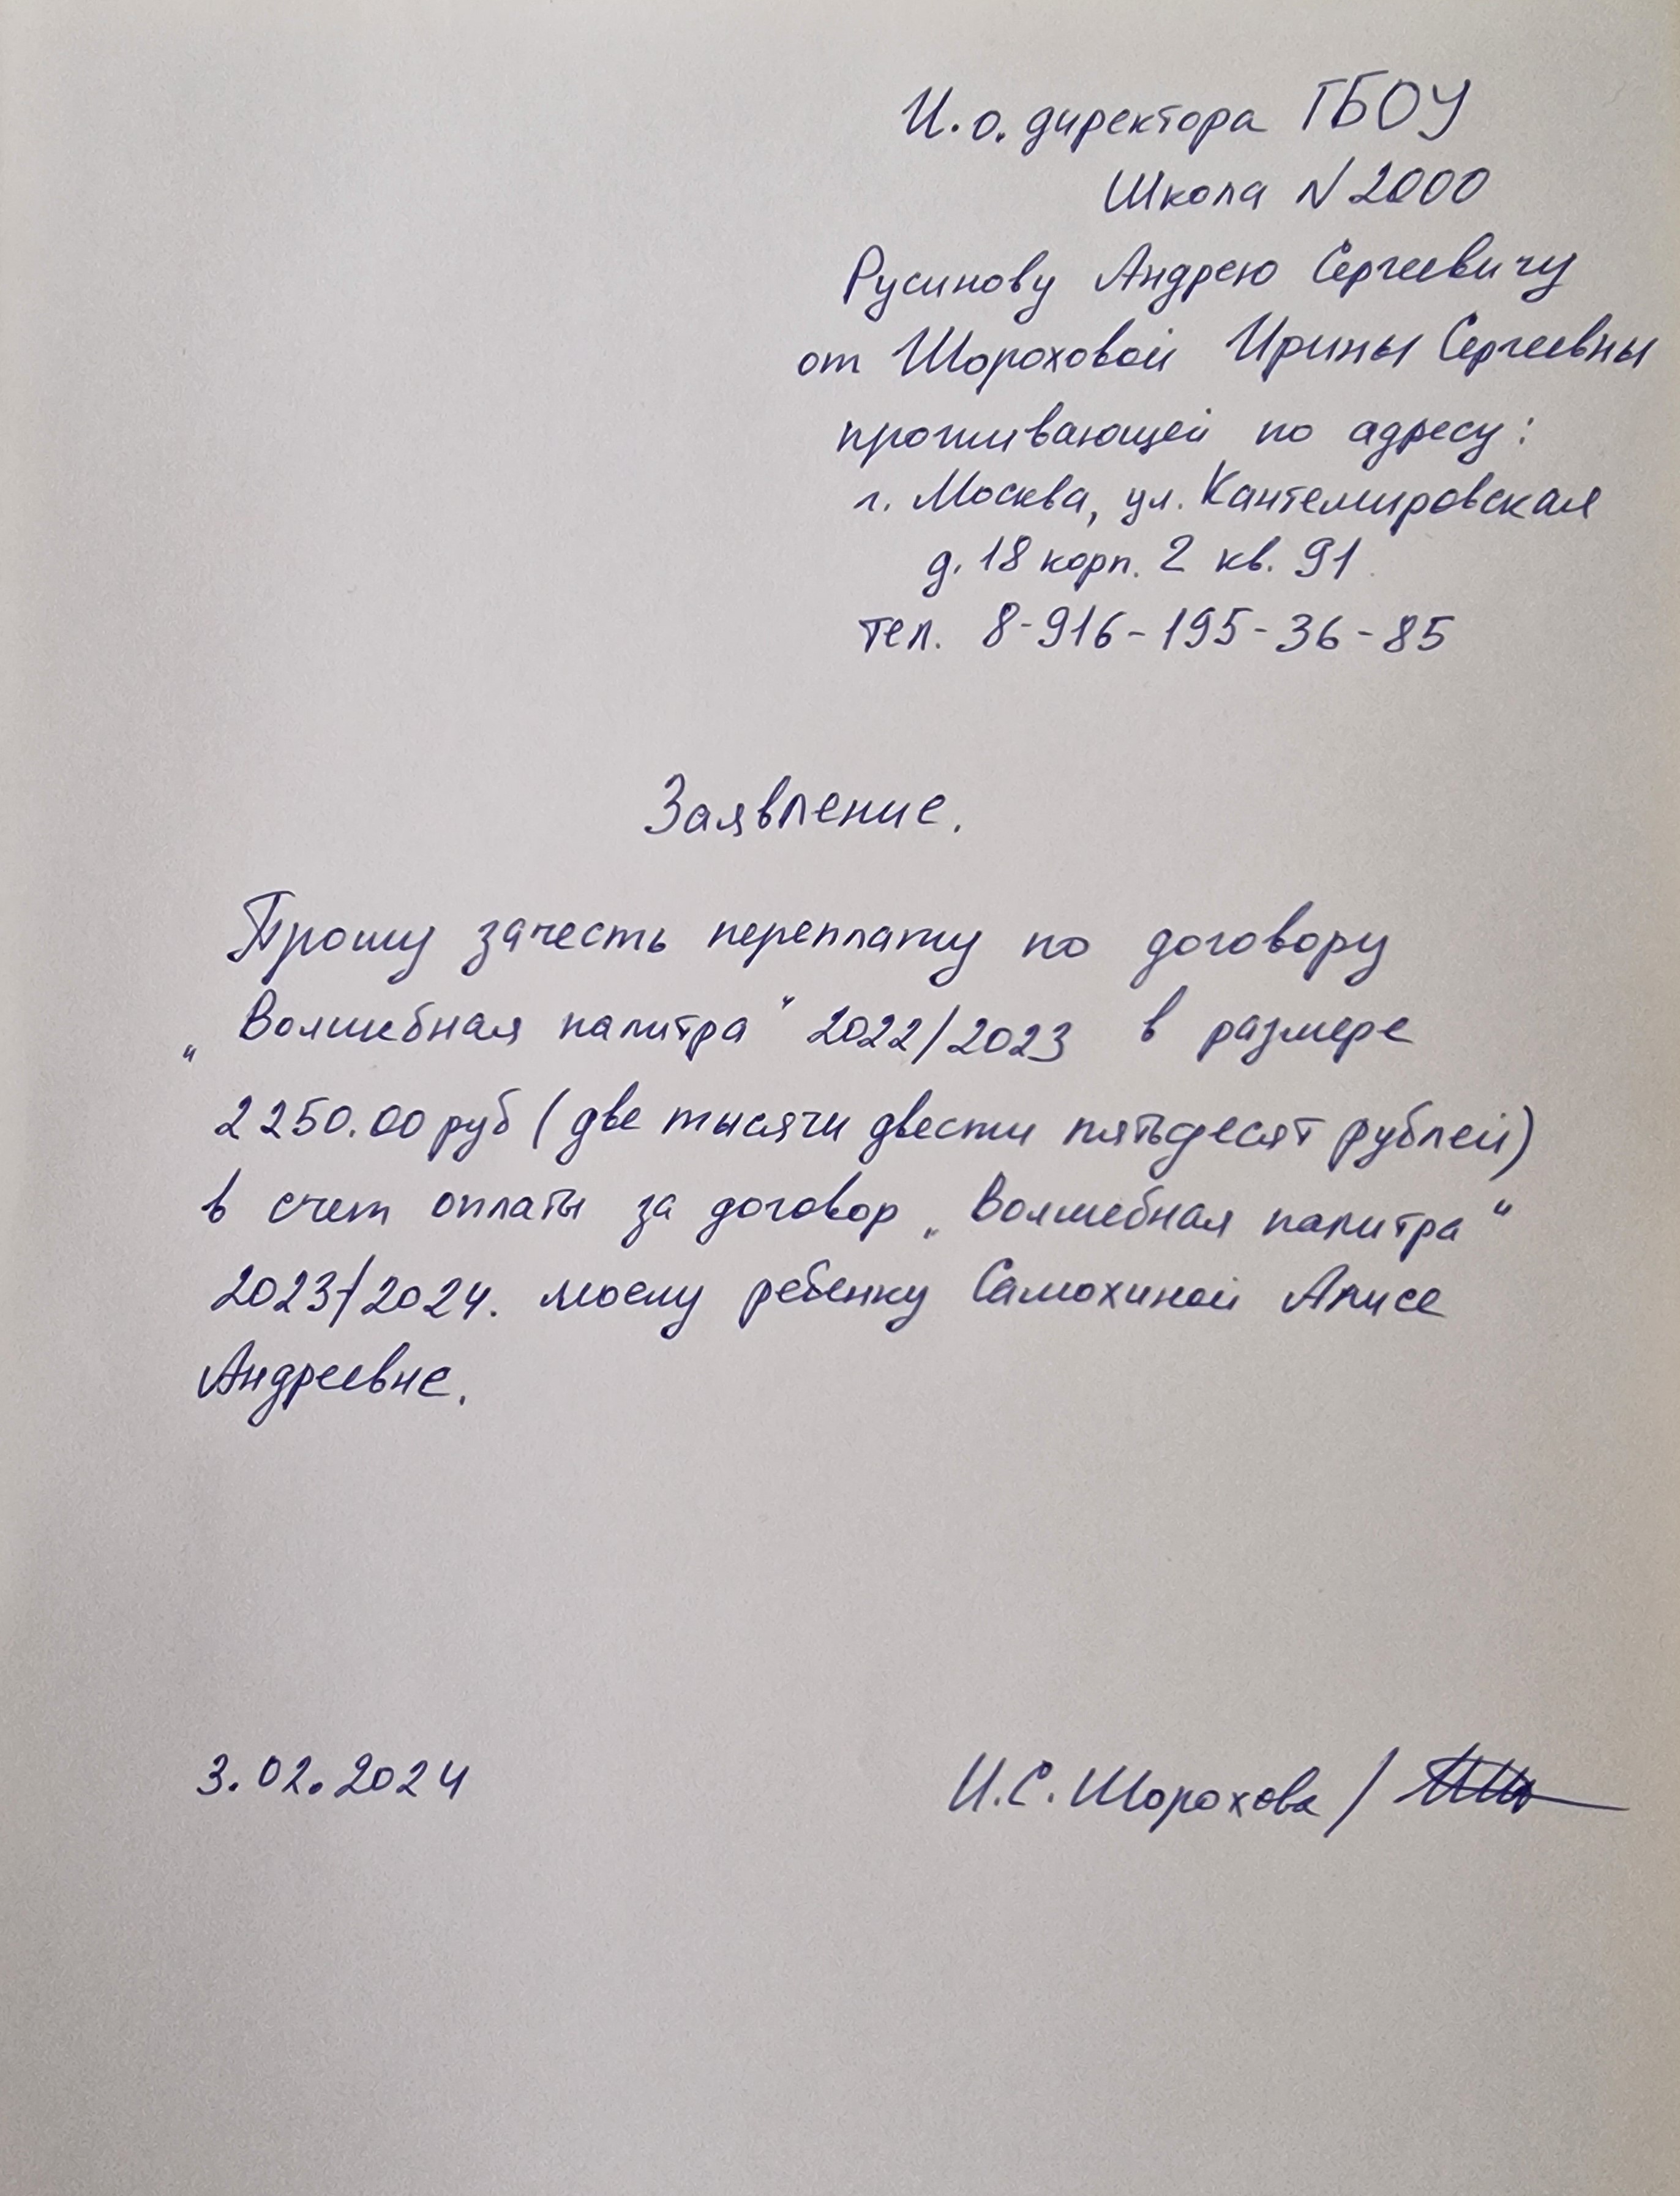 И.о. директора ГБОУ
Школа N 2000
Русинову Андрею Сергеевичу
от Шороховой Ирины Сергеевны
проживающей по адресу:
г. Москва, ул. Кантемировская
д. 18 корп. 2 кв. 91
тел. 8-916-195-36-85
Заявление.
Прошу зачесть переплату по договору
„Волшебная палитра“ 2022/2023 в размере
2250.00 руб (две тысячи двести пятьдесят рублей)
в счет оплаты за договор „Волшебная палитра“
2023/2024. моему ребенку Самохиной Алисе
Андреевне.
3.02.2024 И.С. Шорохова /